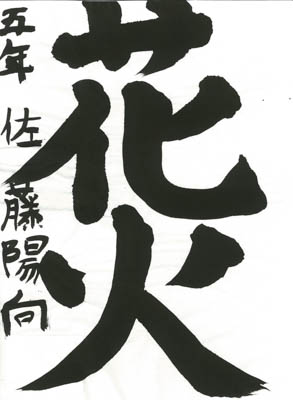 花火
五年 佐藤陽向